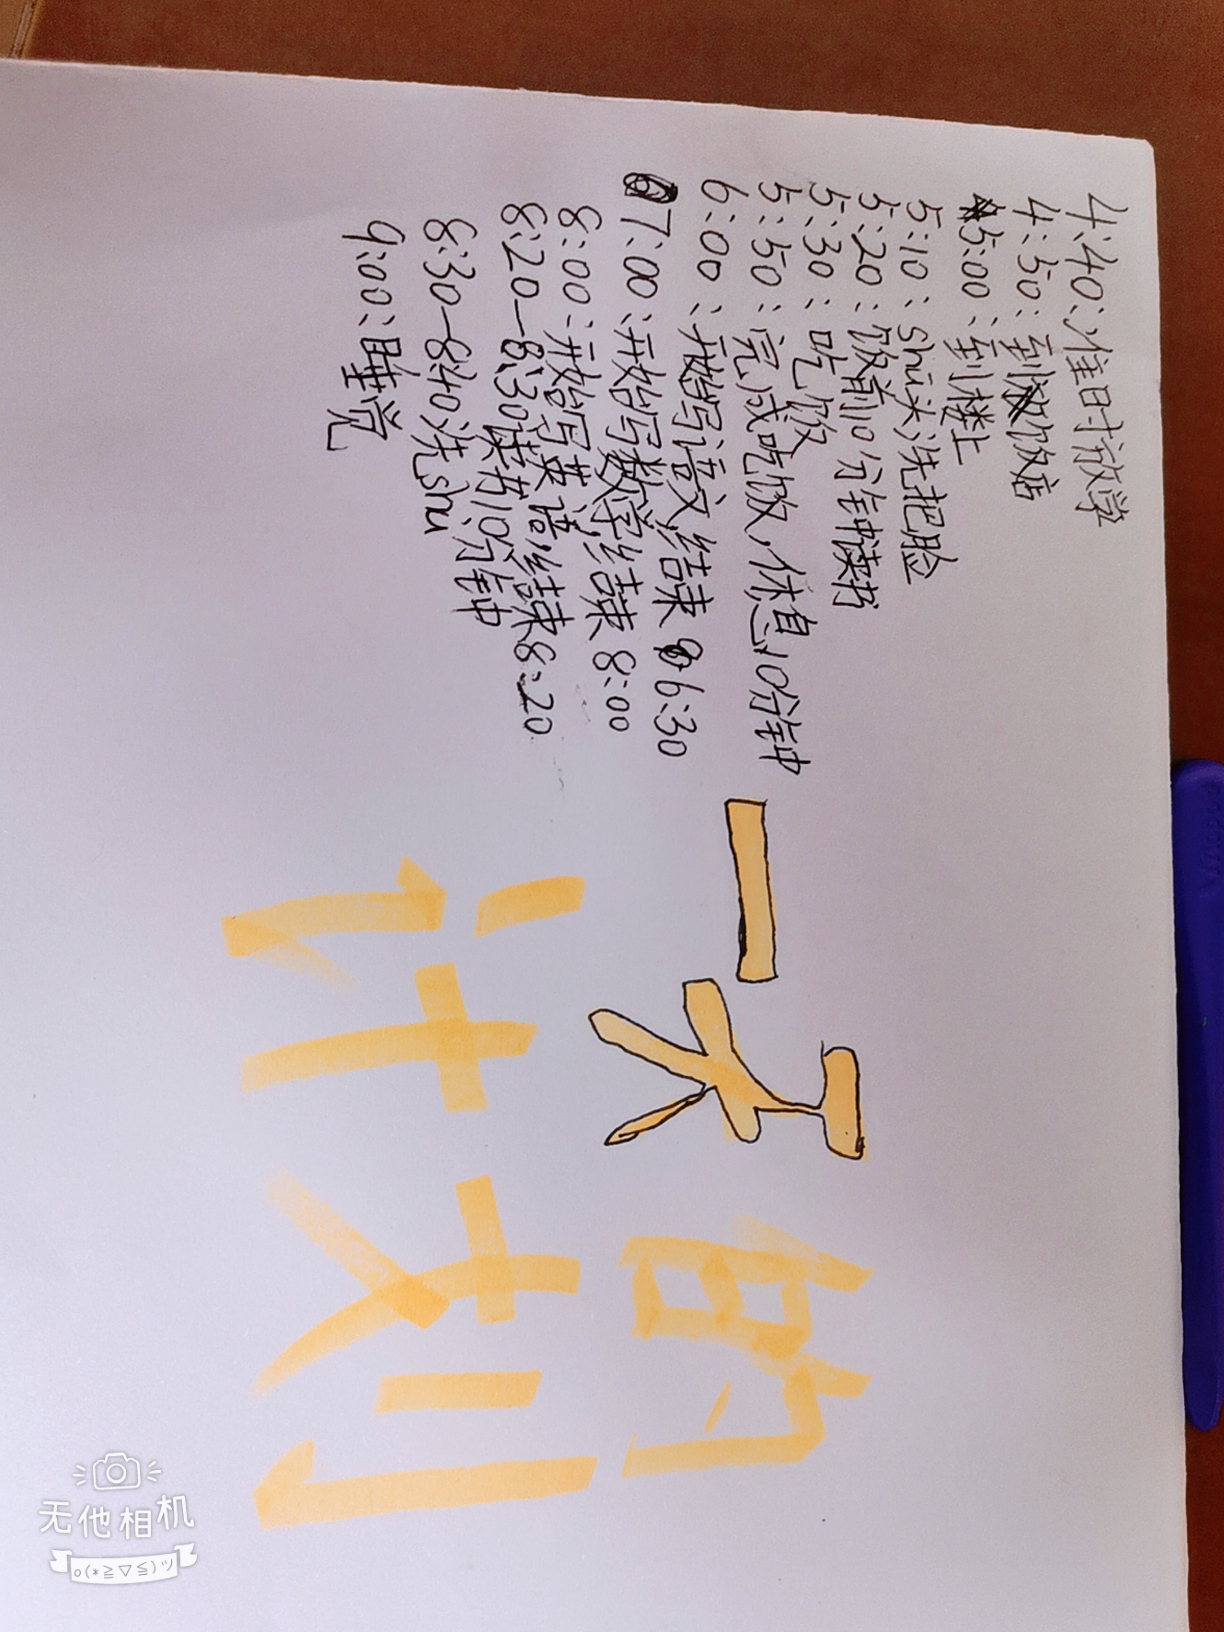 4:40:准时放学
4:50:到饭店
5:00:到楼上
5:10:shū头洗把脸
5:20:饭前10分钟读书
5:30:吃饭
5:50:完成吃饭,休息10分钟
6:00:开始写语文,结束6:30
7:00:开始写数学,结束8:00
8:00:开始写英语,结束8:20
8:20—8:30读书10分钟
8:30—8:40洗shu
9:00:睡觉
一天的
计划
无他相机
o(*≧▽≦)ツ